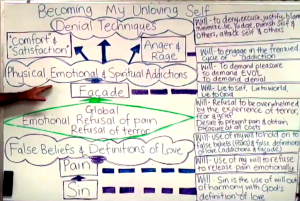 Becoming My Unloving Self
Denial Techniques
"Comfort" &
"Satisfaction"
Anger &
Rage
Physical Emotional & Spiritual Addictions
Facade
Global
Emotional Refusal of pain
Refusal of terror
False Beliefs & Definitions of Love
Pain
Sin
Will - to deny, excuse, justify, blame
minimise, lie, Judge, punish Self &
Others, attack Self & others
Will - to engage in the
cycle of addiction
Will - To demand pleasure
to demand EVAL
To demand
Will - Lie to Self, Lie to World,
Lie to God
Will - Refusal to be overwhelmed
by the experience of terror,
fear & grief
Desire to prevent pain & obtain
pleasure at all costs
Will - use of my will to hold on to
false beliefs (fears) & false definitions
of love
Will - use of my will to refuse
to release pain emotionally
Will - Sin is the use of will out
of harmony with God's
definition of love